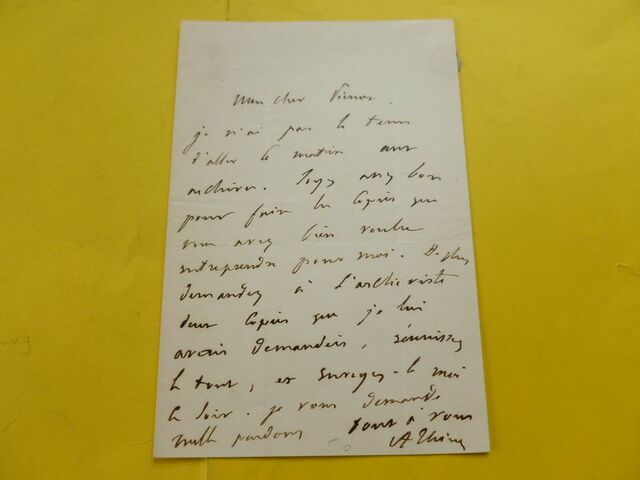 Mon cher
je n'ai pas le tems
d'aller ce matin aux
archives. Soyez assez bon
pour faire les copies que
vous avez bien voulu
entreprendre pour moi. De plus
demandez à l'archiviste
deux copies que je lui
avais demandées, réunissez
le tout, et envoyez-le moi
ce soir. je vous demande
mille pardons tout à vous
A Thiers
50